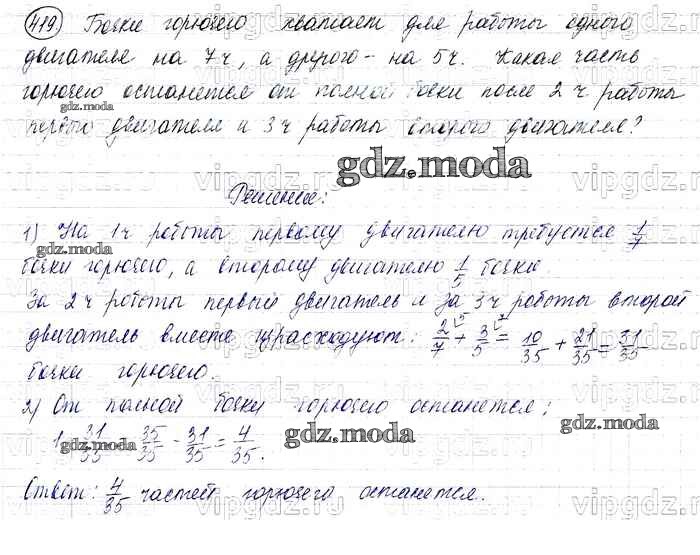 419) Бочки горючего хватает для работы одного
двигателя на 7 ч, а другого - на 5 ч. Какая часть
горючего останется от полной бочки после 2 ч работы
первого двигателя и 3 ч работы второго двигателя?
gdz.moda
gdz.moda
Решение:
1) На 1 ч работы первому двигателю требуется 1/7
gdz.moda
бочки горючего, а второму двигателю 1/5 бочки.
За 2 ч работы первый двигатель и за 3 ч работы второй
двигатель вместе израсходуют: 2/7 + 3/5 = 10/35 + 21/35 = 31/35
бочки горючего.
2) От полной бочки горючего останется:
1 - 31/35 = 35/35 - 31/35 = 4/35.
gdz.moda
gdz.moda
Ответ: 4/35 частей горючего останется.
gdz.moda